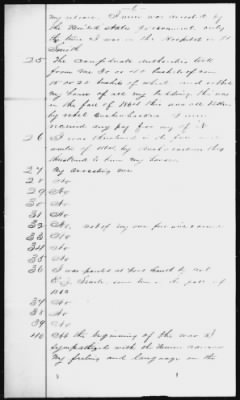 my release. I was never arrested by
the United States Government. only
the time I was in the Hospital in Ft
Smith
25 The Confederate authorities took
from me 30 or 40 bushels of corn
15 or 20 bushels of wheat and robbed
my house of all my bedding. this was
in the fall of 1864 this was all taken
by rebel Bushwhackers I never
received any pay for any of it
26 I was threatened in the fall and
winter of 1862 by Bushwhackers they
threatened to burn my house
27 My answer is no
28 No
29 No
30 No
31 No
32 No. not of my own free will
33 No
34 No
35 No
36 I was paroled at Fort Smith by Col
E. J. Searle, some time in the fall of
1863
37 No
38 No
39 No
40 At the beginning of the war I
sympathized with the Union cause
My feeling and language on the